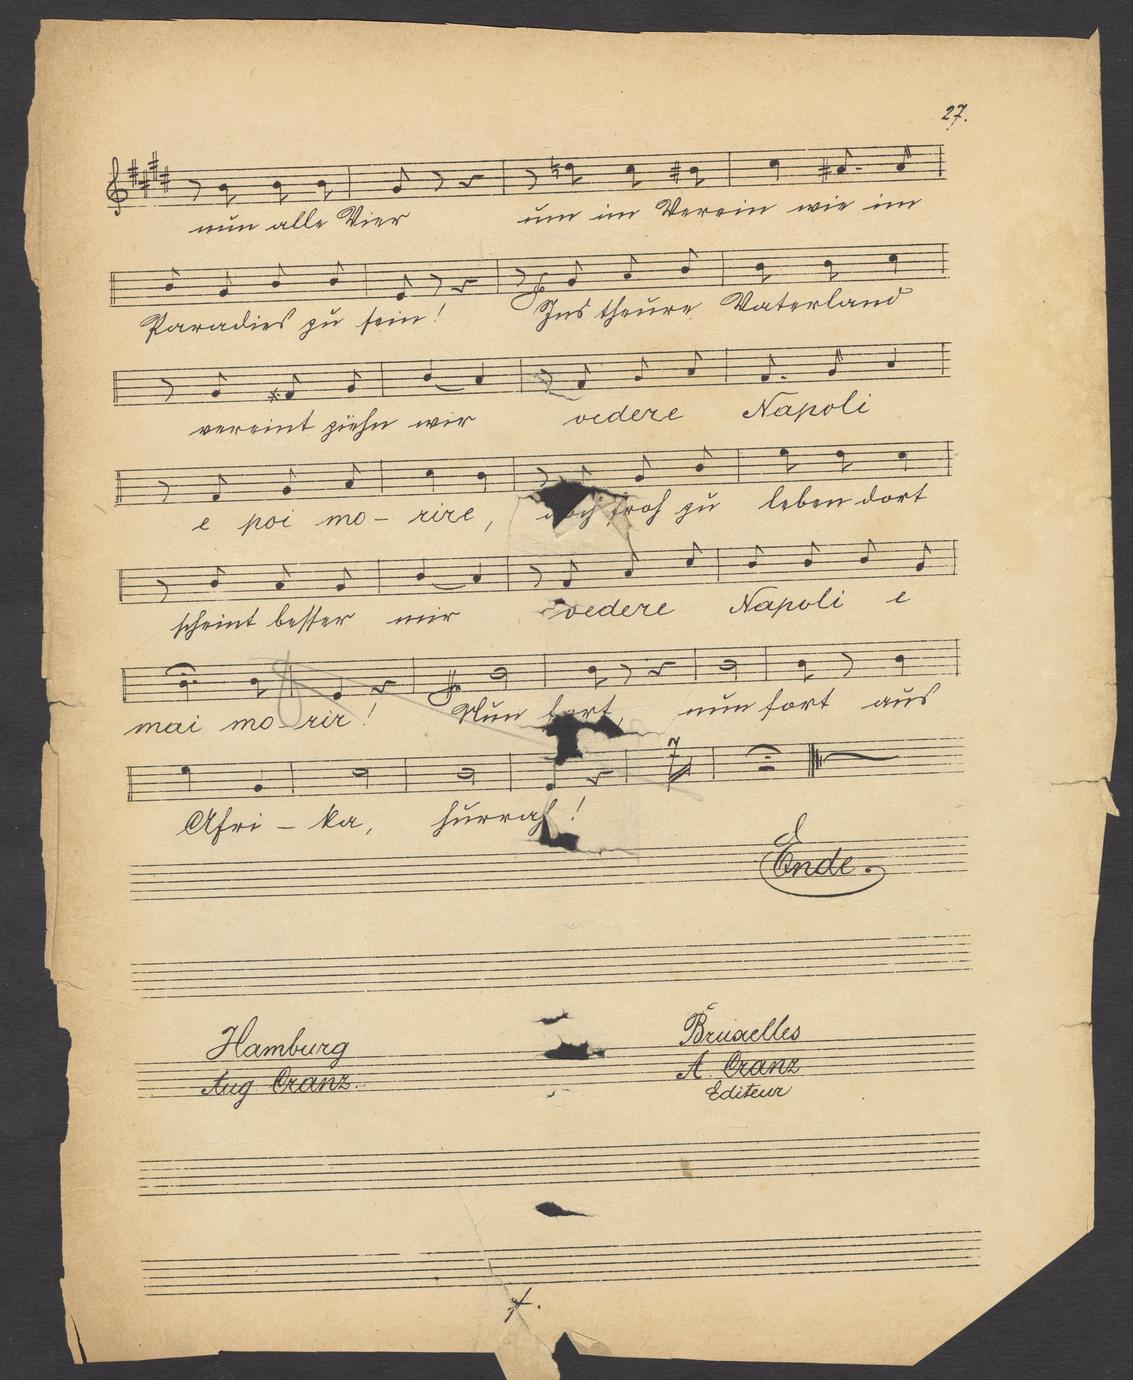 27.
nun alle Vier um im Verein wie im
Paradies zu sein! Ins theure Vaterland
vereint ziehn wir vedere Napoli
e poi mo- rire, doch froh zu leben dort
scheint besser mir vedere Napoli e
mai mo-rir! Nun fort, nun fort aus
7
Afri - ka, hurrah!
Ende.
Hamburg
Aug Cranz.
Bruxelles
A Cranz
Editeur